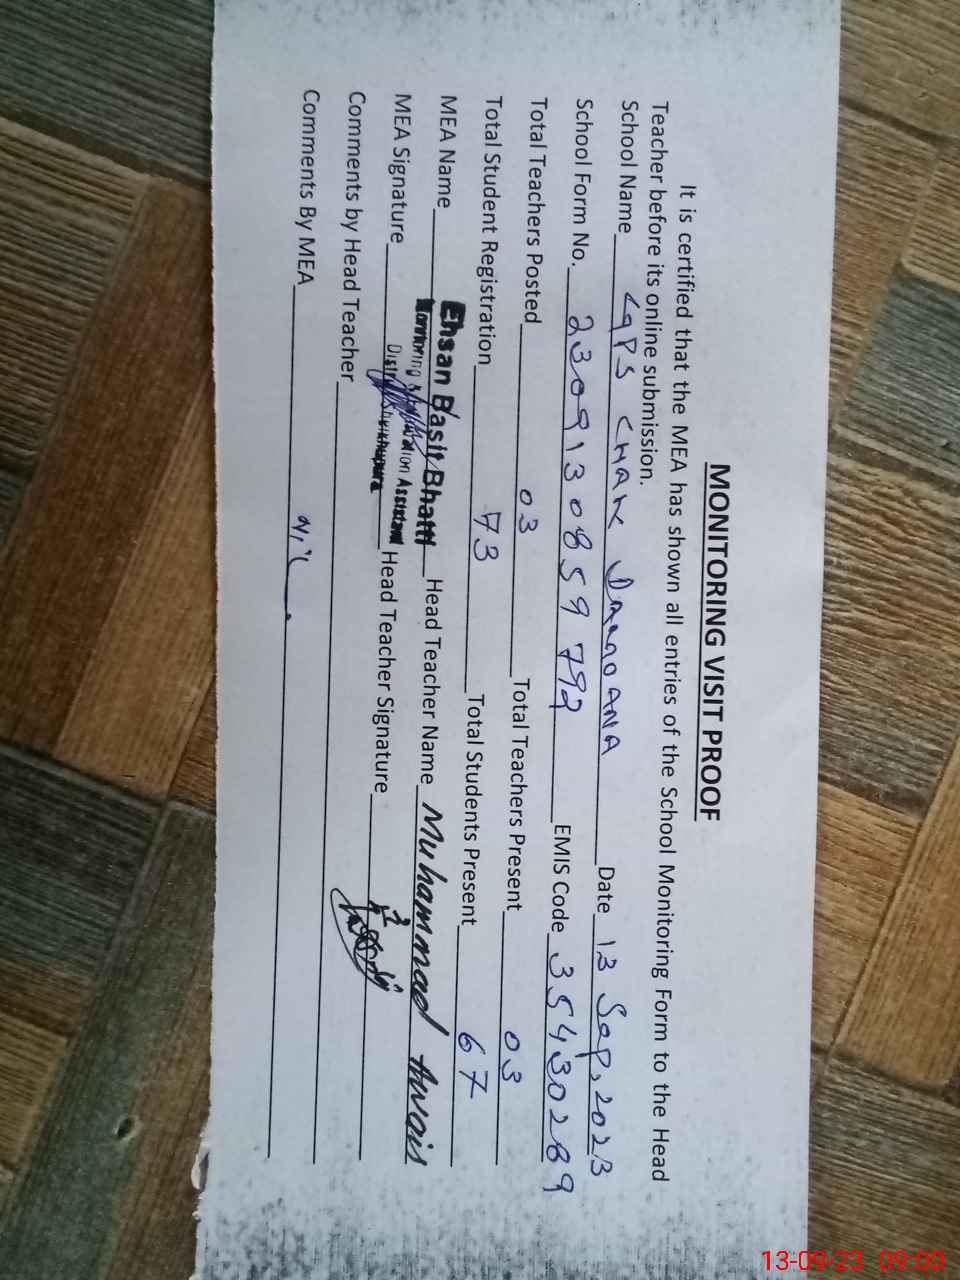 MONITORING VISIT PROOF
It is certified that the MEA has shown all entries of the School Monitoring Form to the Head
Teacher before its online submission.
School Name GPS CHAK Date 13 Sep, 2023
School Form No. 2309130859792 EMIS Code 35430289
Total Teachers Posted 03 Total Teachers Present 03
Total Student Registration 73 Total Students Present 67
MEA Name Ehsan Basit Bhatti Head Teacher Name Muhammad Awais
Monitoring Assistant
MEA Signature Head Teacher Signature
Sheikhupura
Comments by Head Teacher
Comments By MEA
13-09-23 09:00